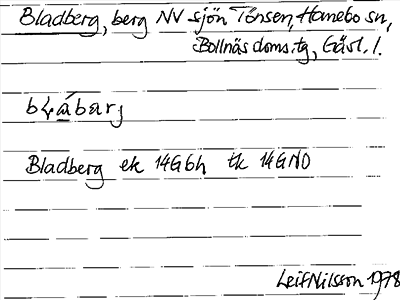 Bladberg, berg NV sjön Tönsen, Hanebo sn,
Bollnäs doms.tg, Gävl. l.
bļábarj
Bladberg ek 14G6h tk 14GNO
Leif Nilsson 1978